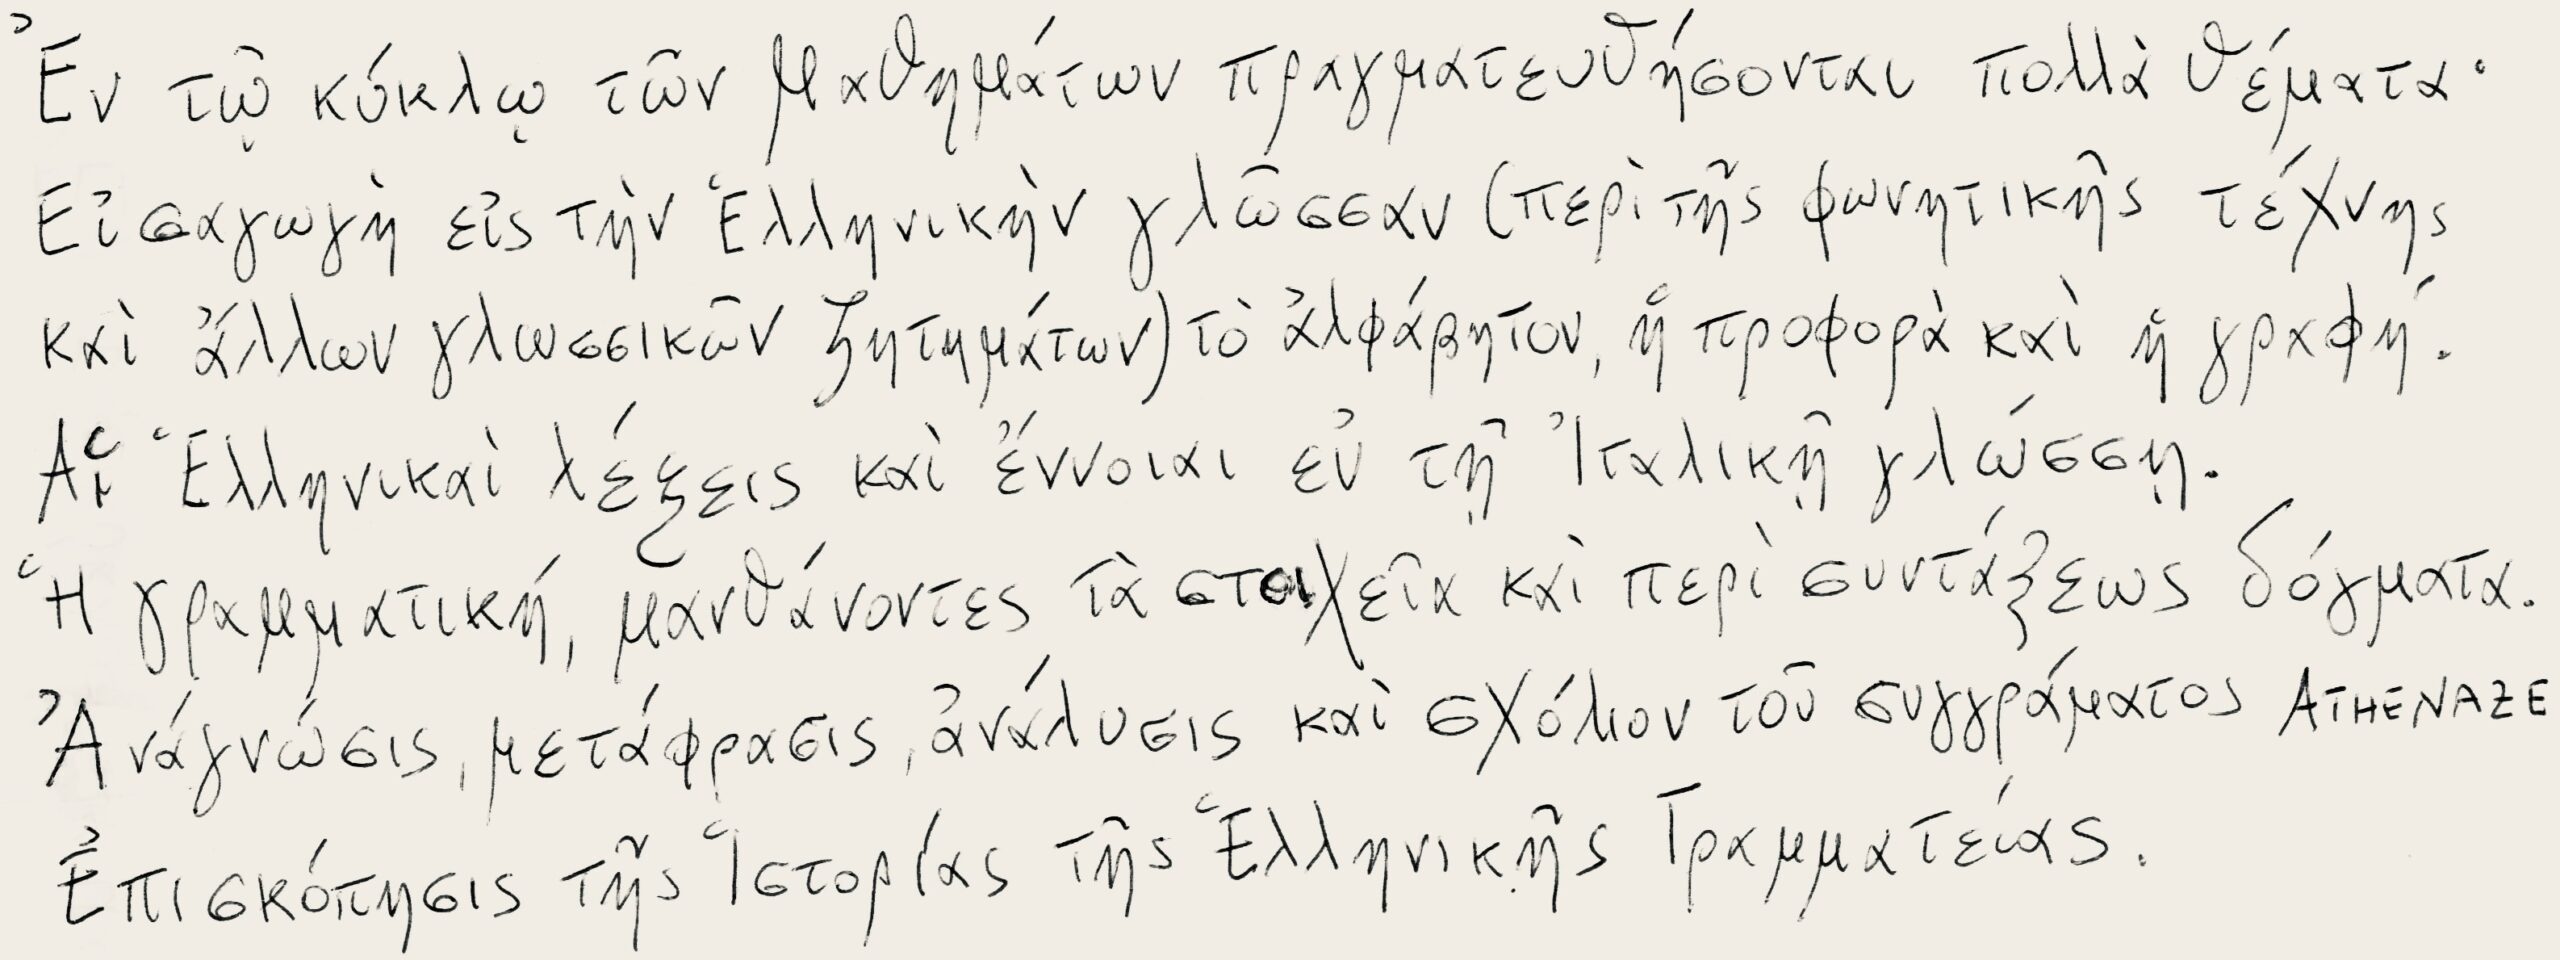 Ἐν τῷ κύκλῳ τῶν μαθημάτων πραγματευθήσονται πολλὰ θέματα·
Εἰσαγωγὴ εἰς τὴν Ἑλληνικὴν γλῶσσαν (περὶ τῆς φωνητικῆς τέχνης
καὶ ἄλλων γλωσσικῶν ζητημάτων) τὸ ἀλφάβητον, ἡ προφορὰ καὶ ἡ γραφή.
Αἱ Ἑλληνικαὶ λέξεις καὶ ἔννοιαι ἐν τῇ Ἰταλικῇ γλώσσῃ.
Ἡ γραμματική, μανθάνοντες τὰ στοιχεῖα καὶ περὶ συντάξεως δόγματα.
Ἀνάγνώσις, μετάφρασις, ἀνάλυσις καὶ σχόλιον τοῦ συγγράματος ATHENAZE
Ἐπισκόπησις τῆς Ἱστορίας τῆς Ἑλληνικῆς Γραμματείας.